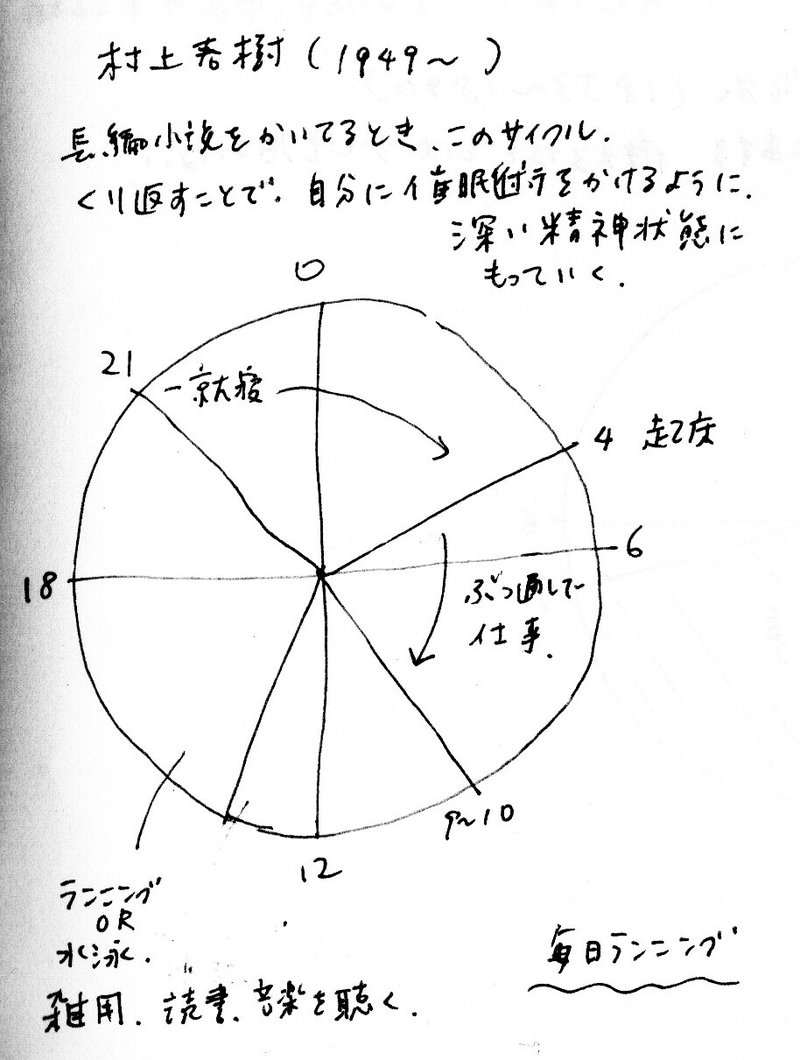 村上春樹(1949〜 )
長編小説をかいてるとき、このサイクル.
くり返すことで、自分に催眠術をかけるように.
深い精神状態に
もっていく.
0
21
一就寝
4 起床
6
18
ぶっ通しで
仕事.
9〜10
12
ランニング
OR
水泳.
毎日ランニング
雑用、読書、音楽を聴く.